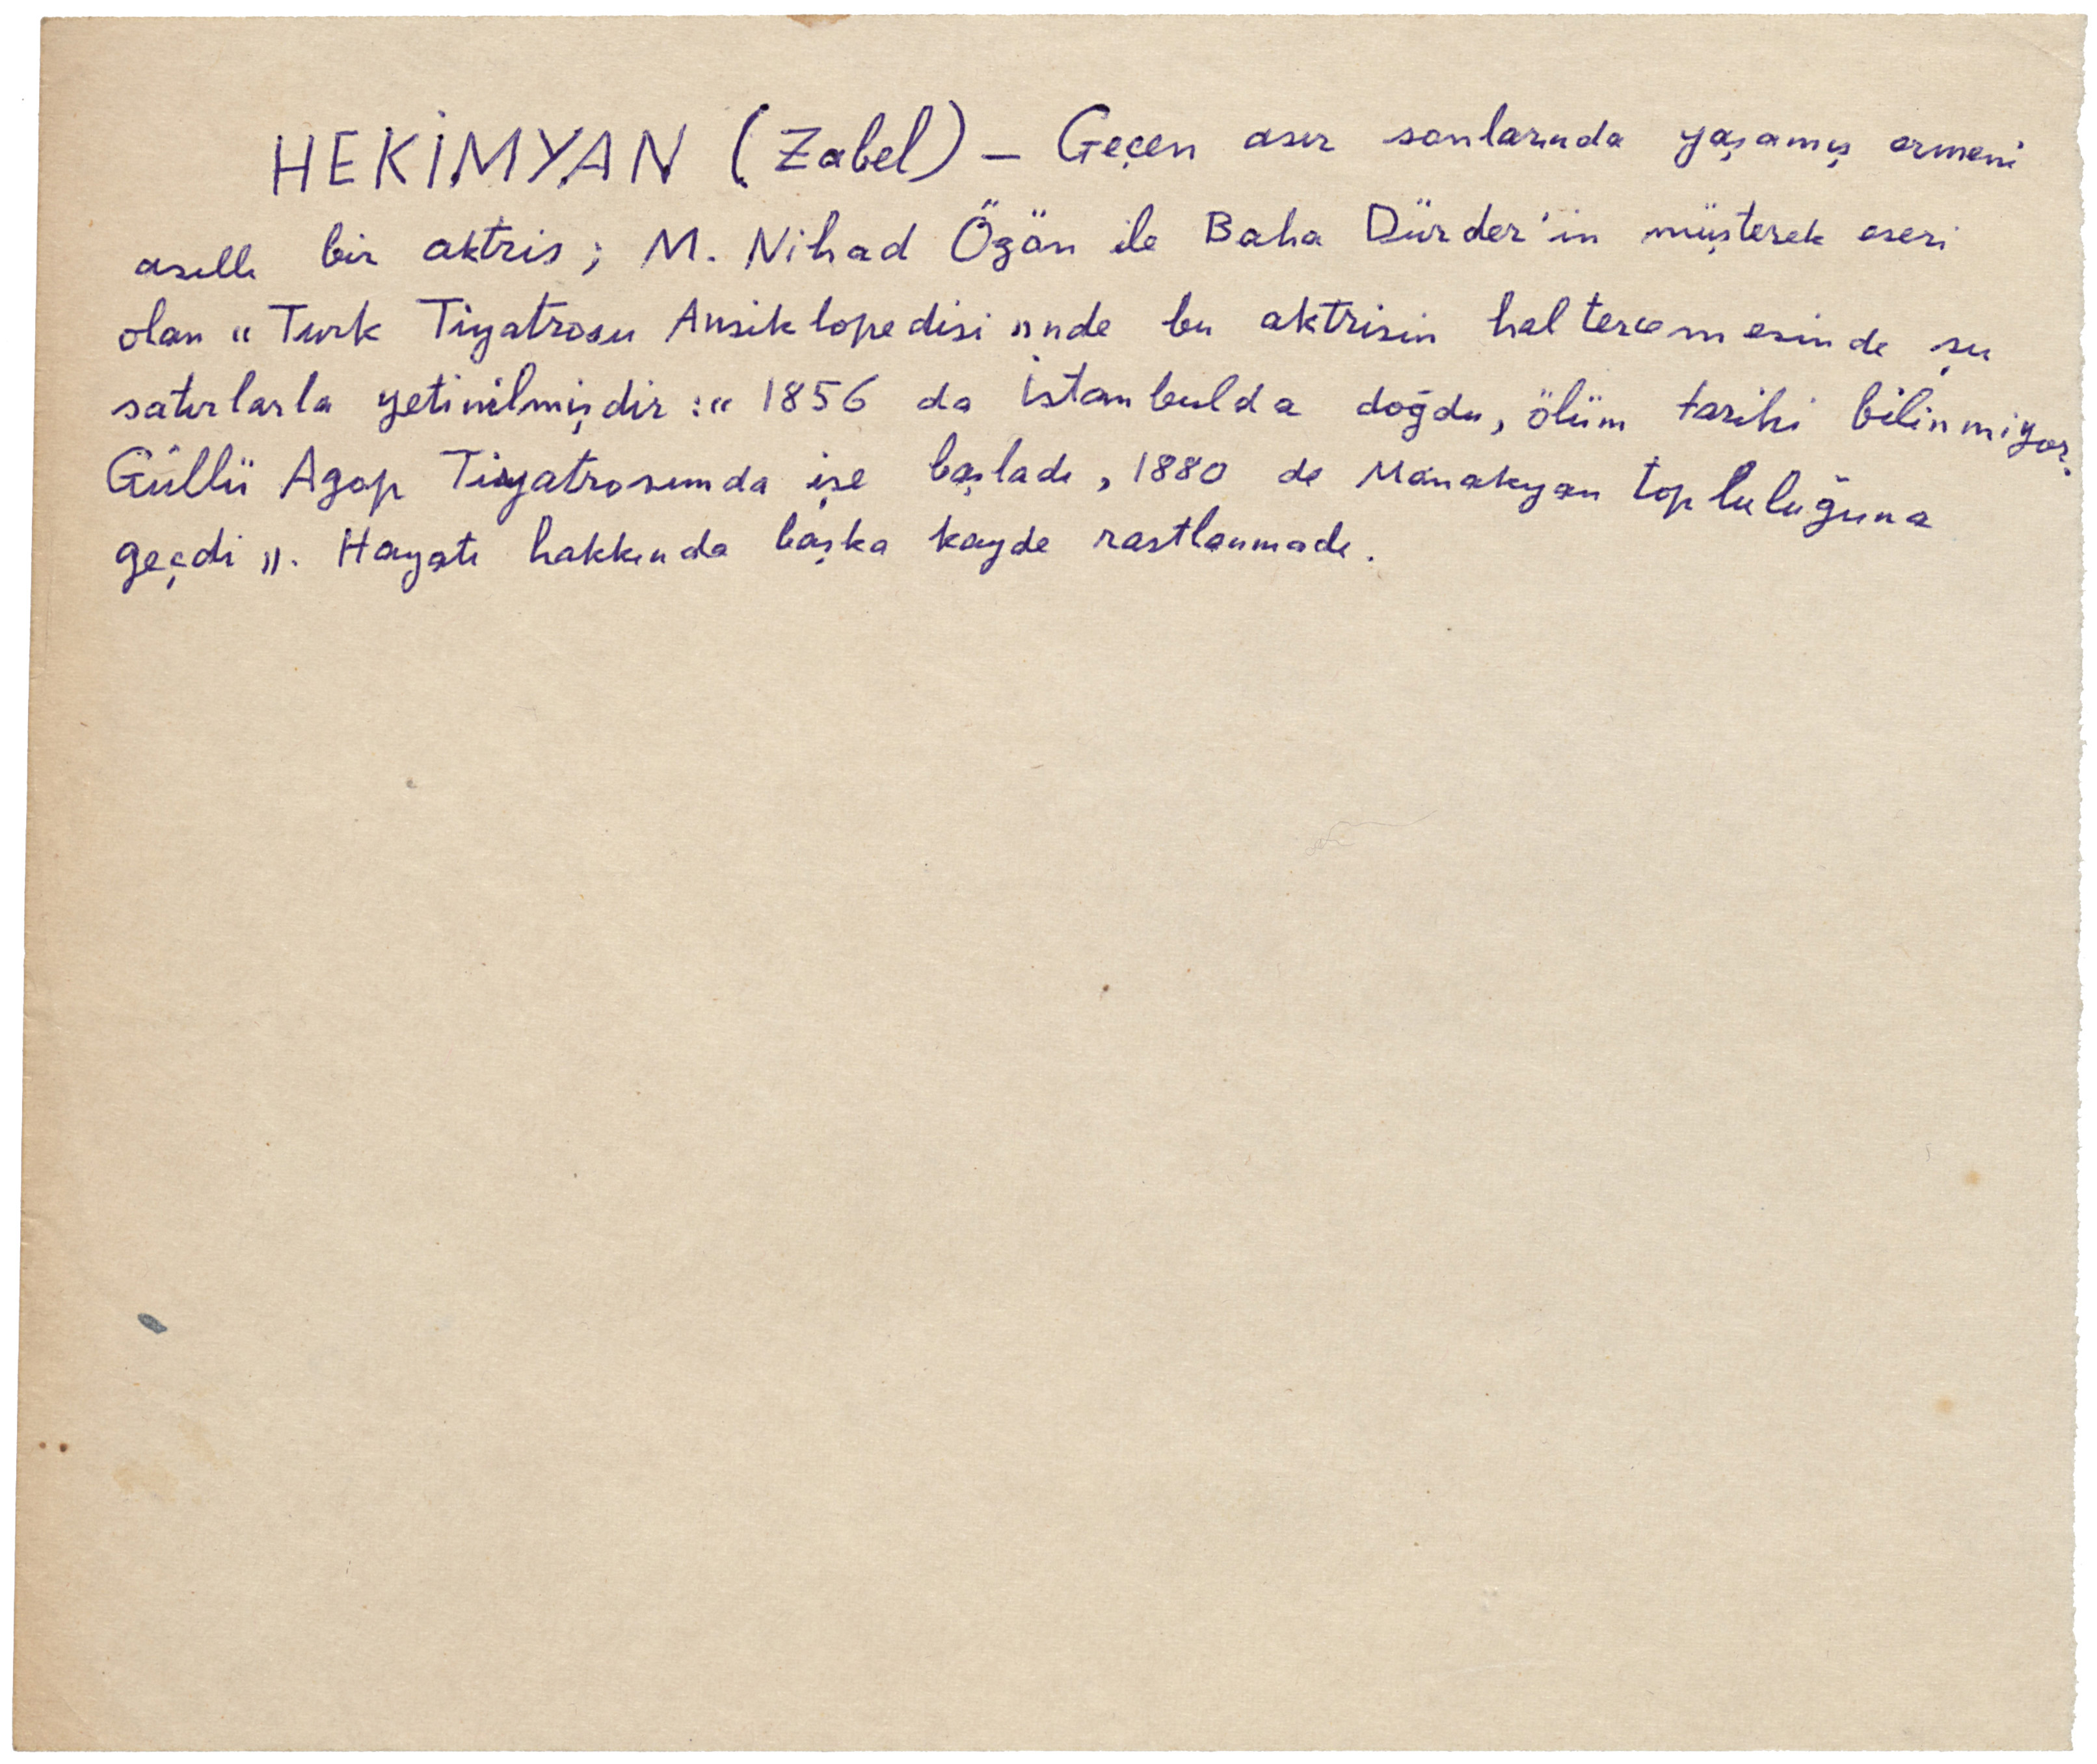 HEKİMYAN (Zabel) — Geçen asır sonlarında yaşamış ermeni
asıllı bir aktris; M. Nihad Özön ile Baha Dürder'in müşterek eseri
olan « Turk Tiyatrosu Ansiklopedisi »nde bu aktrisin hal tercemesinde şu
satırlarla yetinilmişdir : « 1856 da İstanbulda doğdu, ölüm tarihi bilinmiyor.
Güllü Agop Tiyatrosunda işe başladı, 1880 de Manakyan topluluğuna
geçdi ». Hayatı hakkında başka kayde rastlanmadı.